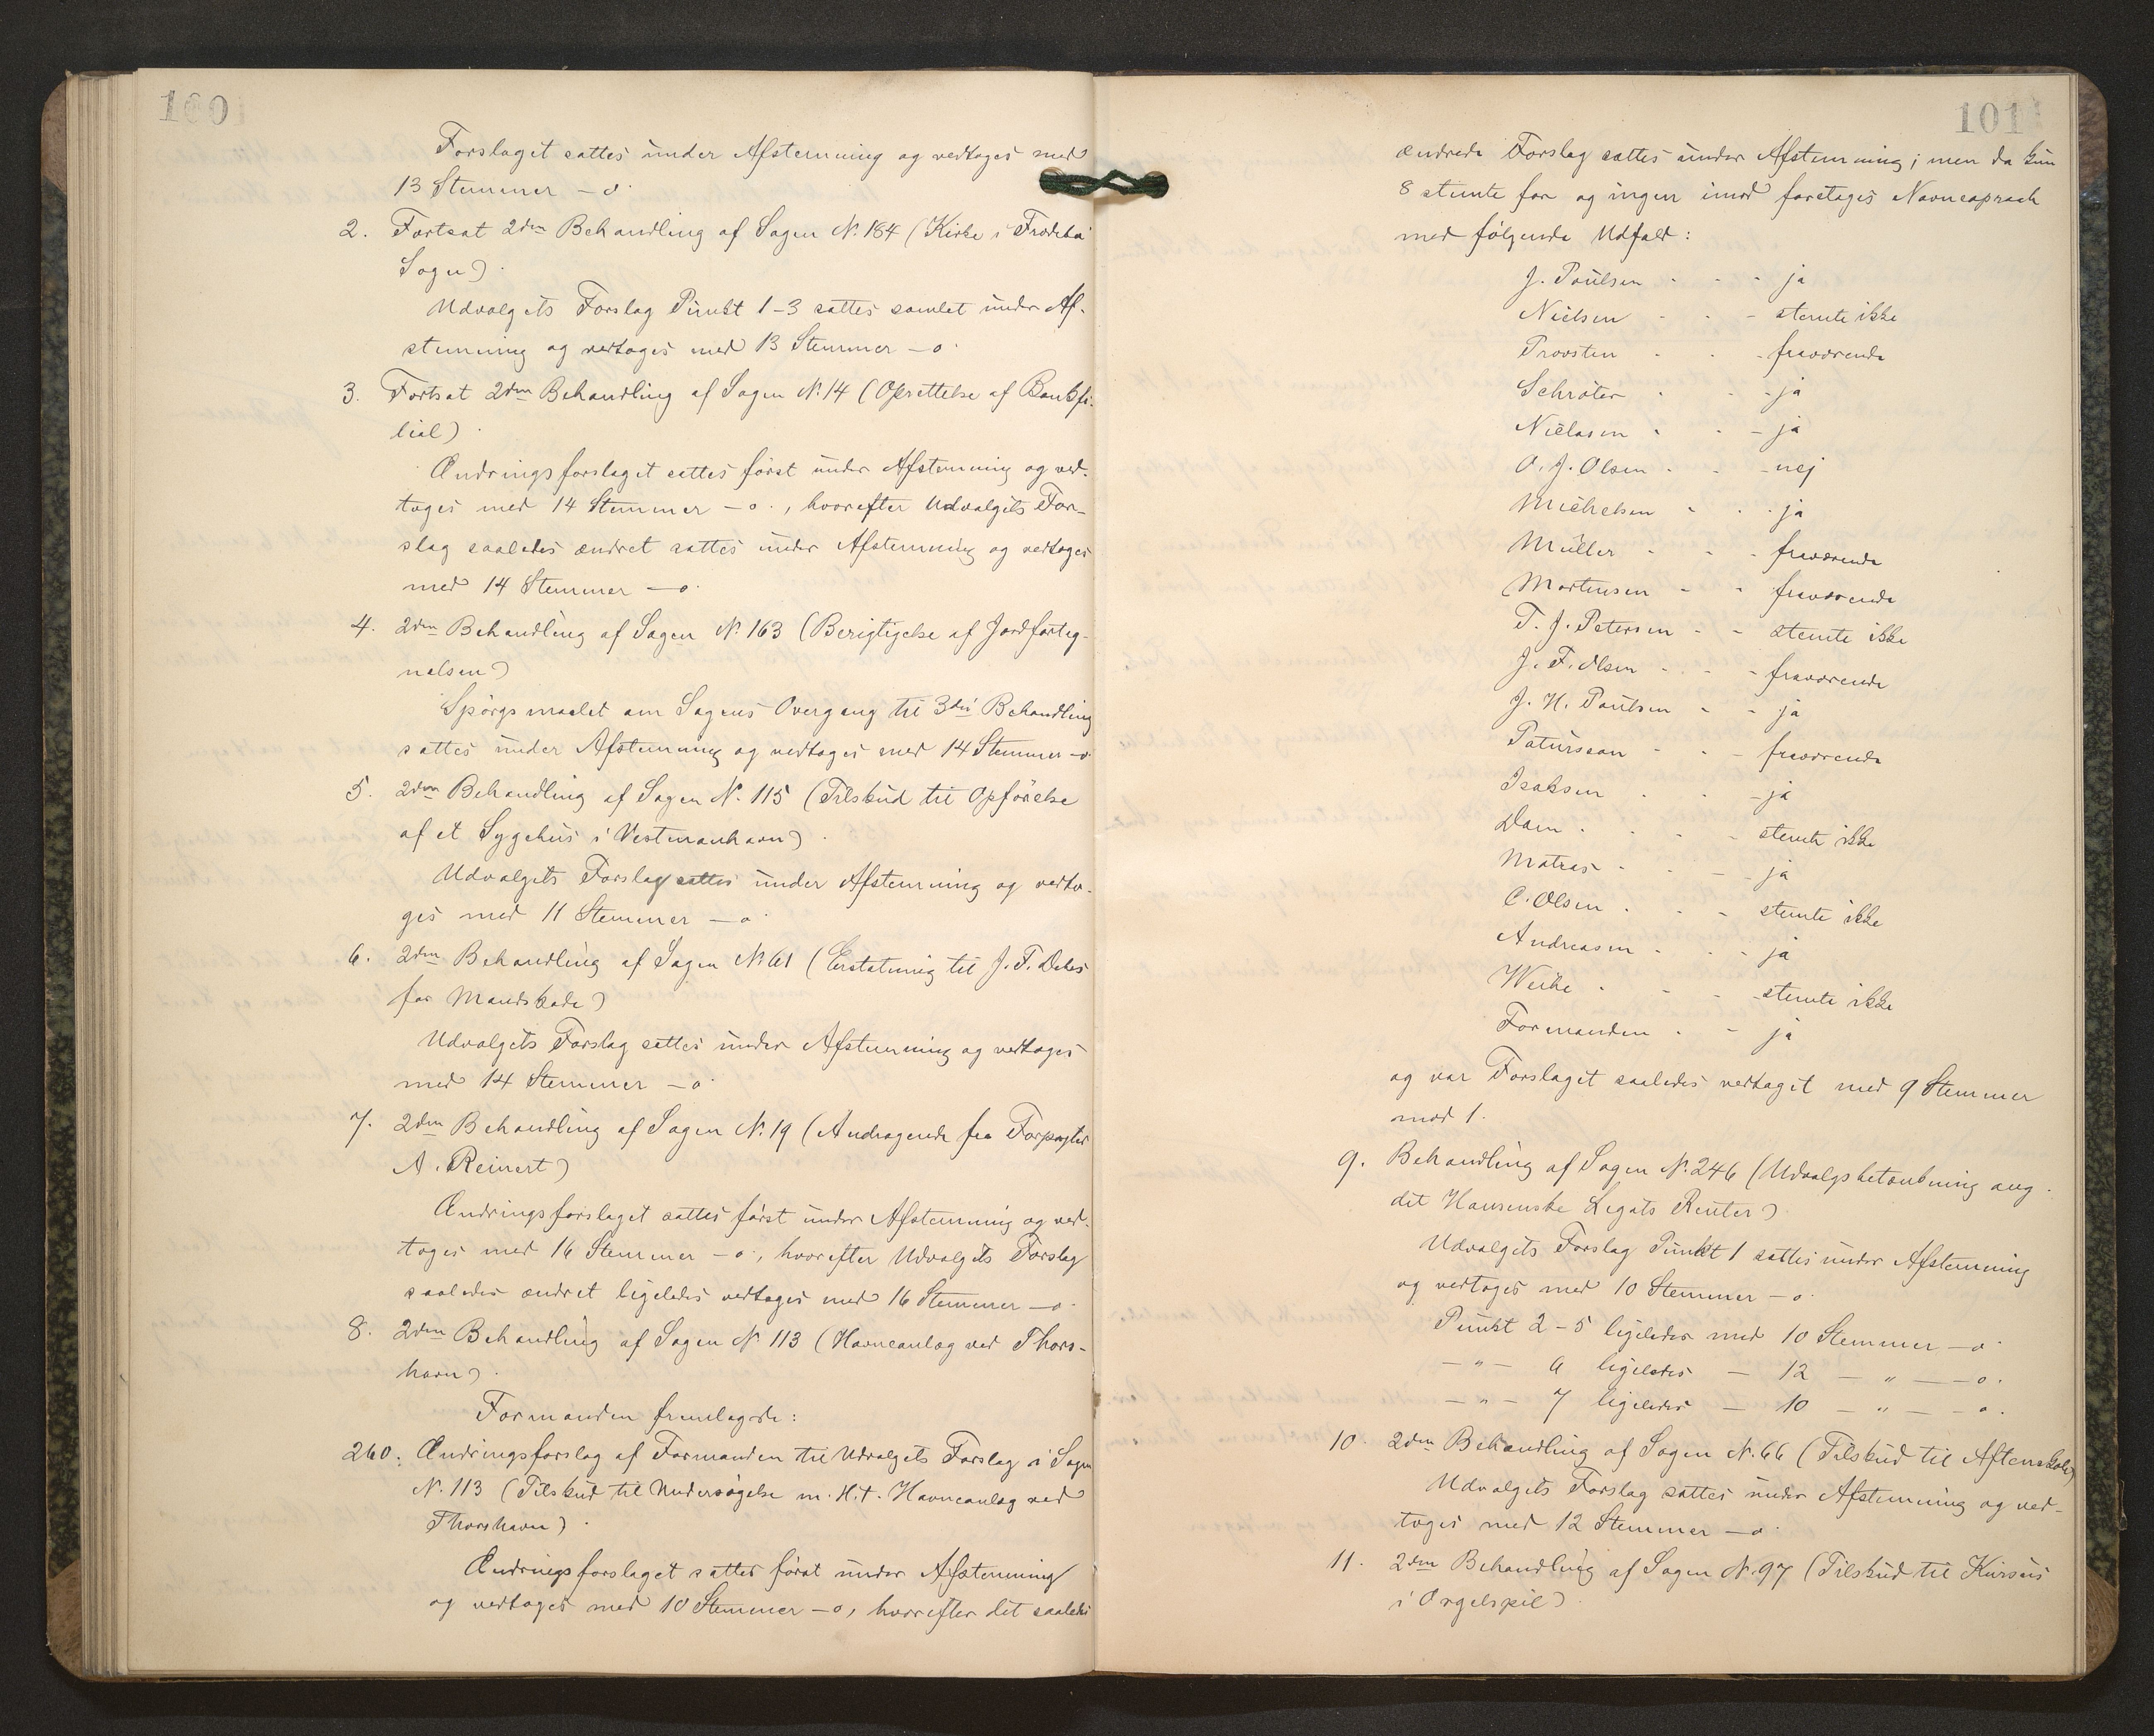 100
Forslaget sattes under Afstemning og vedtoges med
13 Stemmer – o.
2. Fortsat 2den Behandling af Sagen N. 184 (Kirke i Frodebø
Sogn).
Udvalgets Forslag Punkt 1–3 sattes samlet under Af-
stemning og vedtoges med 13 Stemmer – o.
3. Fortsat 2den Behandling af Sagen N. 14 (Oprettelse af Bankfi-
lial).
Ændringsforslaget sattes først under Afstemning og ved-
toges med 14 Stemmer – o., hvorefter Udvalgets For-
slag saaledes ændret sattes under Afstemning og vedtoges
med 14 Stemmer – o.
4. 2den Behandling af Sagen N. 163 (Berigtigelse af Jordforteg-
nelsen)
Spørgsmaalet om Sagens Overgang til 3die Behandling
sattes under Afstemning og vedtoges med 14 Stemmer – o.
5. 2den Behandling af Sagen N. 115 (Tilskud til Opførelse
af et Sygehus i Vestmanhavn).
Udvalgets Forslag sattes under Afstemning og vedto-
ges med 11 Stemmer – o.
6. 2den Behandling af Sagen N. 61 (Erstatning til J. F. Debes
for Mandskade)
Udvalgets Forslag sattes under Afstemning og vedtoges
med 14 Stemmer – o.
7. 2den Behandling af Sagen N. 19 (Andragende fra Forpagter
A. Reinert)
Ændringsforslaget sattes først under Afstemning og ved-
toges med 16 Stemmer – o., hvorefter Udvalgets Forslag
saaledes ændret ligeledes vedtoges med 16 Stemmer – o.
8. 2den Behandling af Sagen N. 113 (Havneanlæg ved Thors-
havn).
Formanden fremlagde:
260. Ændringsforslag af Formanden til Udvalgets Forslag i Sagen
N. 113 (Tilskud til Undersøgelse m. H. t. Havneanlæg ved
Thorshavn).
Ændringsforslaget sattes først under Afstemning
og vedtoges med 10 Stemmer – o, hvorefter det saaledes
101
ændrede Forslag sattes under Afstemning; men da kun
8 stemte for og ingen imod foretoges Navneopraab
med følgende Udfald:
J. Poulsen - - - ja
Nielsen - - - stemte ikke
Provsten - - - fraværende
Schrøter - - - ja
Niclasen - - - ja
O. J. Olsen - - - nej
Michelsen - - - ja
Müller - - - fraværende
Mortensen - - fraværende
T. J. Petersen - - stemte ikke
J. F. Olsen - - - fraværende
J. H. Poulsen - - ja
Patursson - - - fraværende
Isaksen - - - ja
Dam - - - - stemte ikke
Matras - - - - ja
C. Olsen - - - stemte ikke
Andreasen - - - ja
Weihe - - - - stemte ikke
Formanden - - ja
og var Forslaget saaledes vedtaget med 9 Stemmer
mod 1.
9. Behandling af Sagen N. 246 (Udvalgsbetænkning ang.
det Hansenske Legats Renter)
Udvalgets Forslag Punkt 1 sattes under Afstemning
og vedtoges med 10 Stemmer – o.
Punkt 2–5 ligeledes med 10 Stemmer – o.
– " – 6 ligeledes – 12 – " – – o.
– " – 7 ligeledes – 10 – " – – o.
10. 2den Behandling af Sagen N. 66 (Tilskud til Aftenskole)
Udvalgets Forslag sattes under Afstemning og ved-
toges med 12 Stemmer – o.
11. 2den Behandling af Sagen N. 97 (Tilskud til Kursus
i Orgelspil).